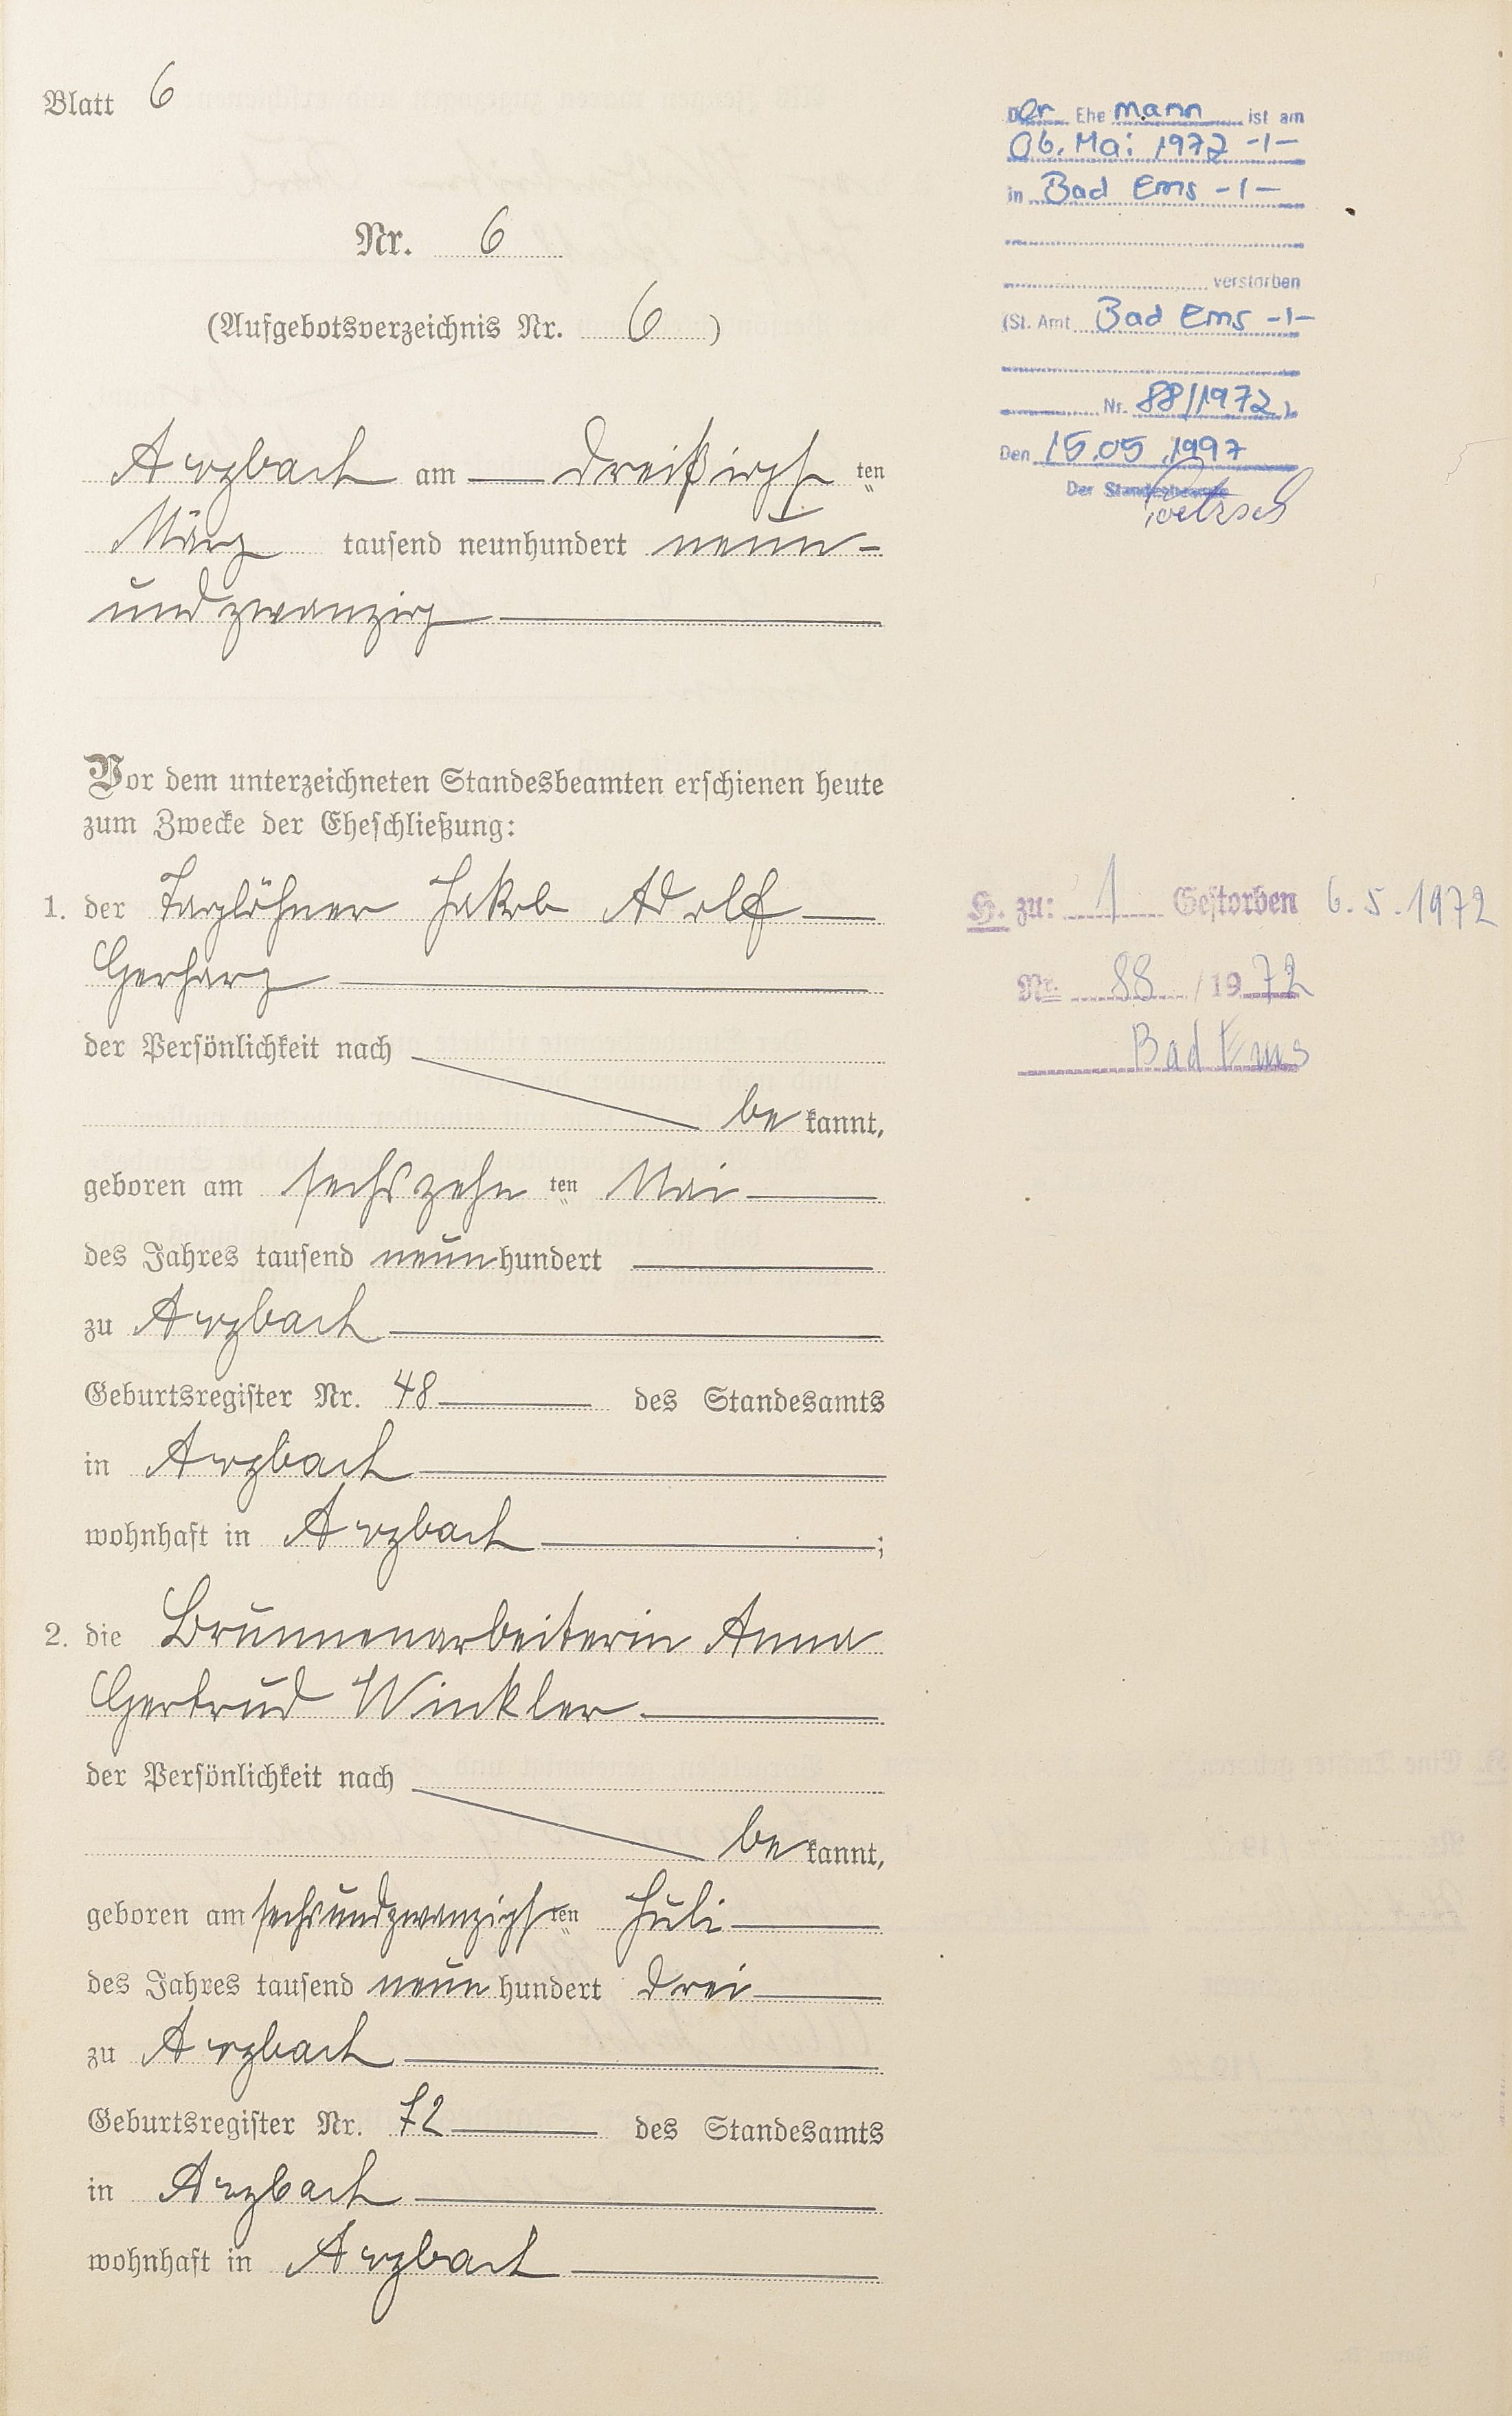 Blatt 6
Nr. 6
(Aufgebotsverzeichnis Nr. 6)
Arzbach am dreißigsten
März tausend neunhundert neun-
undzwanzig
Vor dem unterzeichneten Standesbeamten erschienen heute
zum Zwecke der Eheschließung:
1. der Taglöhner Jakob Adolf
Gerharz
der Persönlichkeit nach
bekannt,
geboren am sechszehnten Mai
des Jahres tausend neunhundert
zu Arzbach
Geburtsregister Nr. 48 des Standesamts
in Arzbach
wohnhaft in Arzbach ;
2. die Brunnenarbeiterin Anna
Gertrud Winkler
der Persönlichkeit nach
bekannt,
geboren am sechsundzwanzigsten Juli
des Jahres tausend neunhundert drei
zu Arzbach
Geburtsregister Nr. 72 des Standesamts
in Arzbach
wohnhaft in Arzbach
Der Ehemann ist am
06. Mai 1972 -/-
in Bad Ems -/-
verstorben
(St. Amt Bad Ems -/-
Nr. 88/1972)
Den 15.05.1997
Der Standesbeamte
H. zu: 1 Gestorben 6.5.1972
Nr. 88 / 1972
Bad Ems